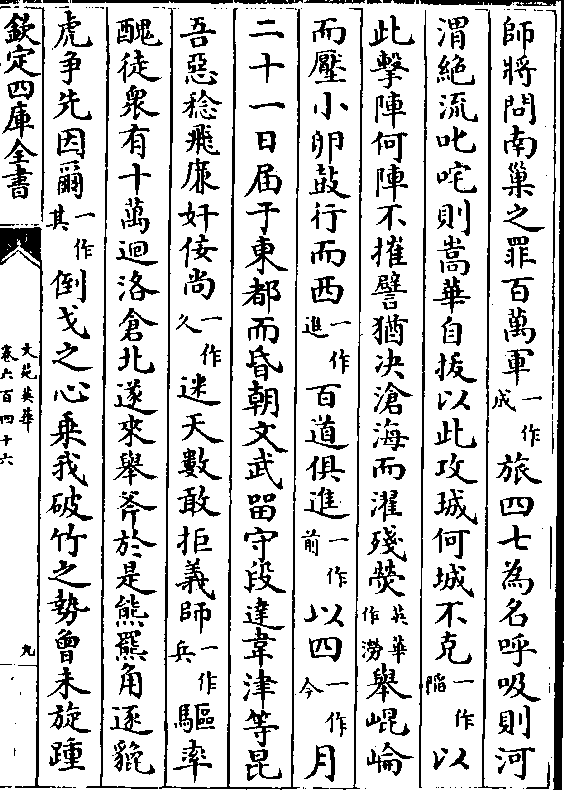 師將問南巢之罪百萬軍一作成旅四七為名呼吸則河
渭絶流叱咤則嵩華自拔以此攻城何城不克一作陷以
此擊陣何陣不摧譬猶决滄海而濯殘熒英華作澇舉崐崘
而壓小卵鼓行而西一作進百道俱進一作前以四一作今月
二十一日届于東都而昏朝文武留守段達韋津等昆
吾惡稔飛廉奸佞尚一作久迷天數敢拒義師一作兵驅率
醜徒衆有十萬迴洛倉北遂來舉斧於是熊羆角逐貔
虎爭先因爾一作其倒戈之心乗我破竹之勢曾未旋踵
欽定四庫全書
文苑英華
卷六百四十六
九